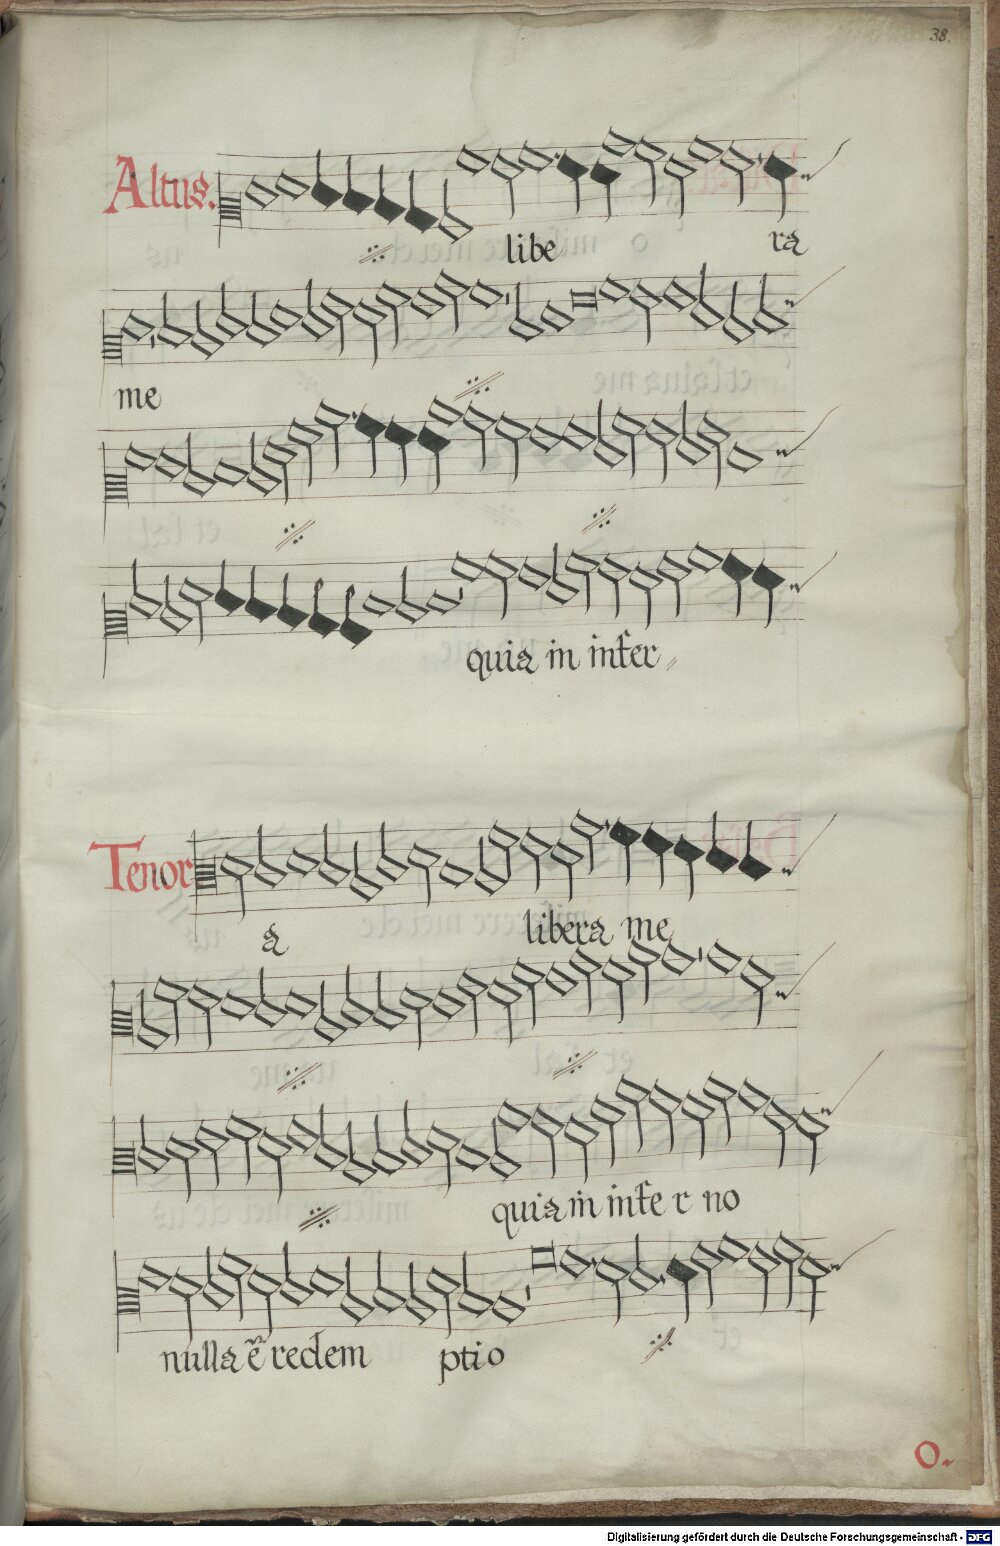 38.
Altus.
libe ra
me
quia in infer
Tenor
a libera me
quia in infe r no
nulla ē redem ptio
O.
Digitalisierung gefördert durch die Deutsche Forschungsgemeinschaft - DFG